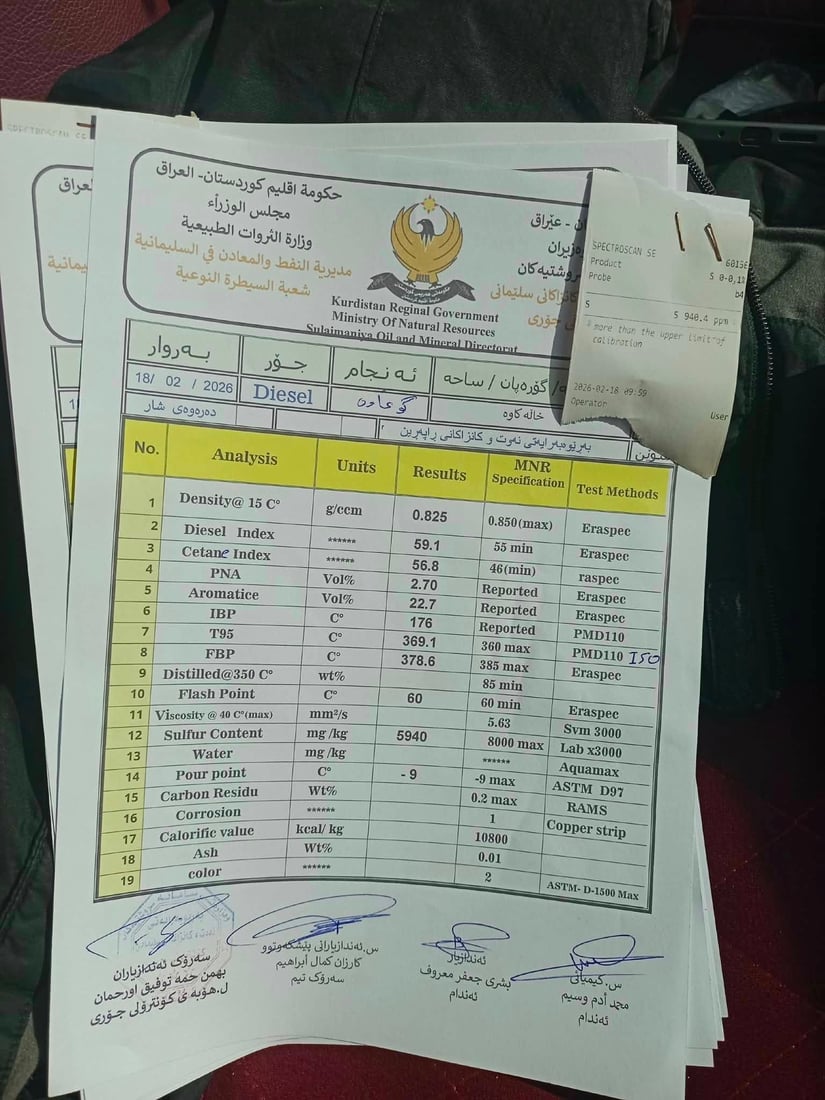 SPECTROSCAN SE
حكومة اقليم كوردستان- العراق
مجلس الوزراء
وزارة الثروات الطبيعية
مديرية النفط والمعادن في السليمانية
شعبة السيطرة النوعية
ن - عێراق
ەزیران
ڕوشتیەکان
کانزاکانی سلێمانی
جۆری
Kurdistan Reginal Government
Ministry Of Natural Resources
Sulaimaniya Oil and Mineral Directorat
SPECTROSCAN SE
Product
Probe S 0-0,1%
b4
S S 940.4 ppm
more than the upper limit of
calibration
2026-02-18 09:59
Operator User
بەروار جۆر ئەنجام / گۆڕەپان / ساحە
18/ 02 / 2026 Diesel خاڵە کاوە
دەرەوەی شار بەڕێوەبەرایەتی نەوت و کانزاکانی ڕاپەڕین
No. Analysis Units Results MNR Specification Test Methods
1 Density@ 15 C° g/ccm 0.825 0.850(max) Eraspec
2 Diesel Index ****** 59.1 55 min Eraspec
3 Cetane Index ****** 56.8 46(min) raspec
4 PNA Vol% 2.70 Reported Eraspec
5 Aromatice Vol% 22.7 Reported Eraspec
6 IBP C° 176 Reported PMD110
7 T95 C° 369.1 360 max PMD110 ISO
8 FBP C° 378.6 385 max Eraspec
9 Distilled@350 C° wt% 85 min
10 Flash Point C° 60 60 min Eraspec
11 Viscosity @ 40 C°(max) mm²/s 5.63 Svm 3000
12 Sulfur Content mg /kg 5940 8000 max Lab x3000
13 Water mg /kg ****** Aquamax
14 Pour point C° - 9 -9 max ASTM D97
15 Carbon Residu Wt% 0.2 max RAMS
16 Corrosion ****** 1 Copper strip
17 Calorific value kcal/ kg 10800
18 Ash Wt% 0.01
19 color ****** 2 ASTM- D-1500 Max
سەرۆک ئەندازیاران
بهمن حمه توفیق اورحمان
ل.هۆبەی کۆنترۆڵی جۆری
س.ئەندازیارانی پێشکەوتوو
کارزان کمال أبراهیم
سەرۆک تیم
ئەندازیار
بشری جعفر معروف
ئەندام
س.کیمیائی
محمد أدم وسیم
ئەندام